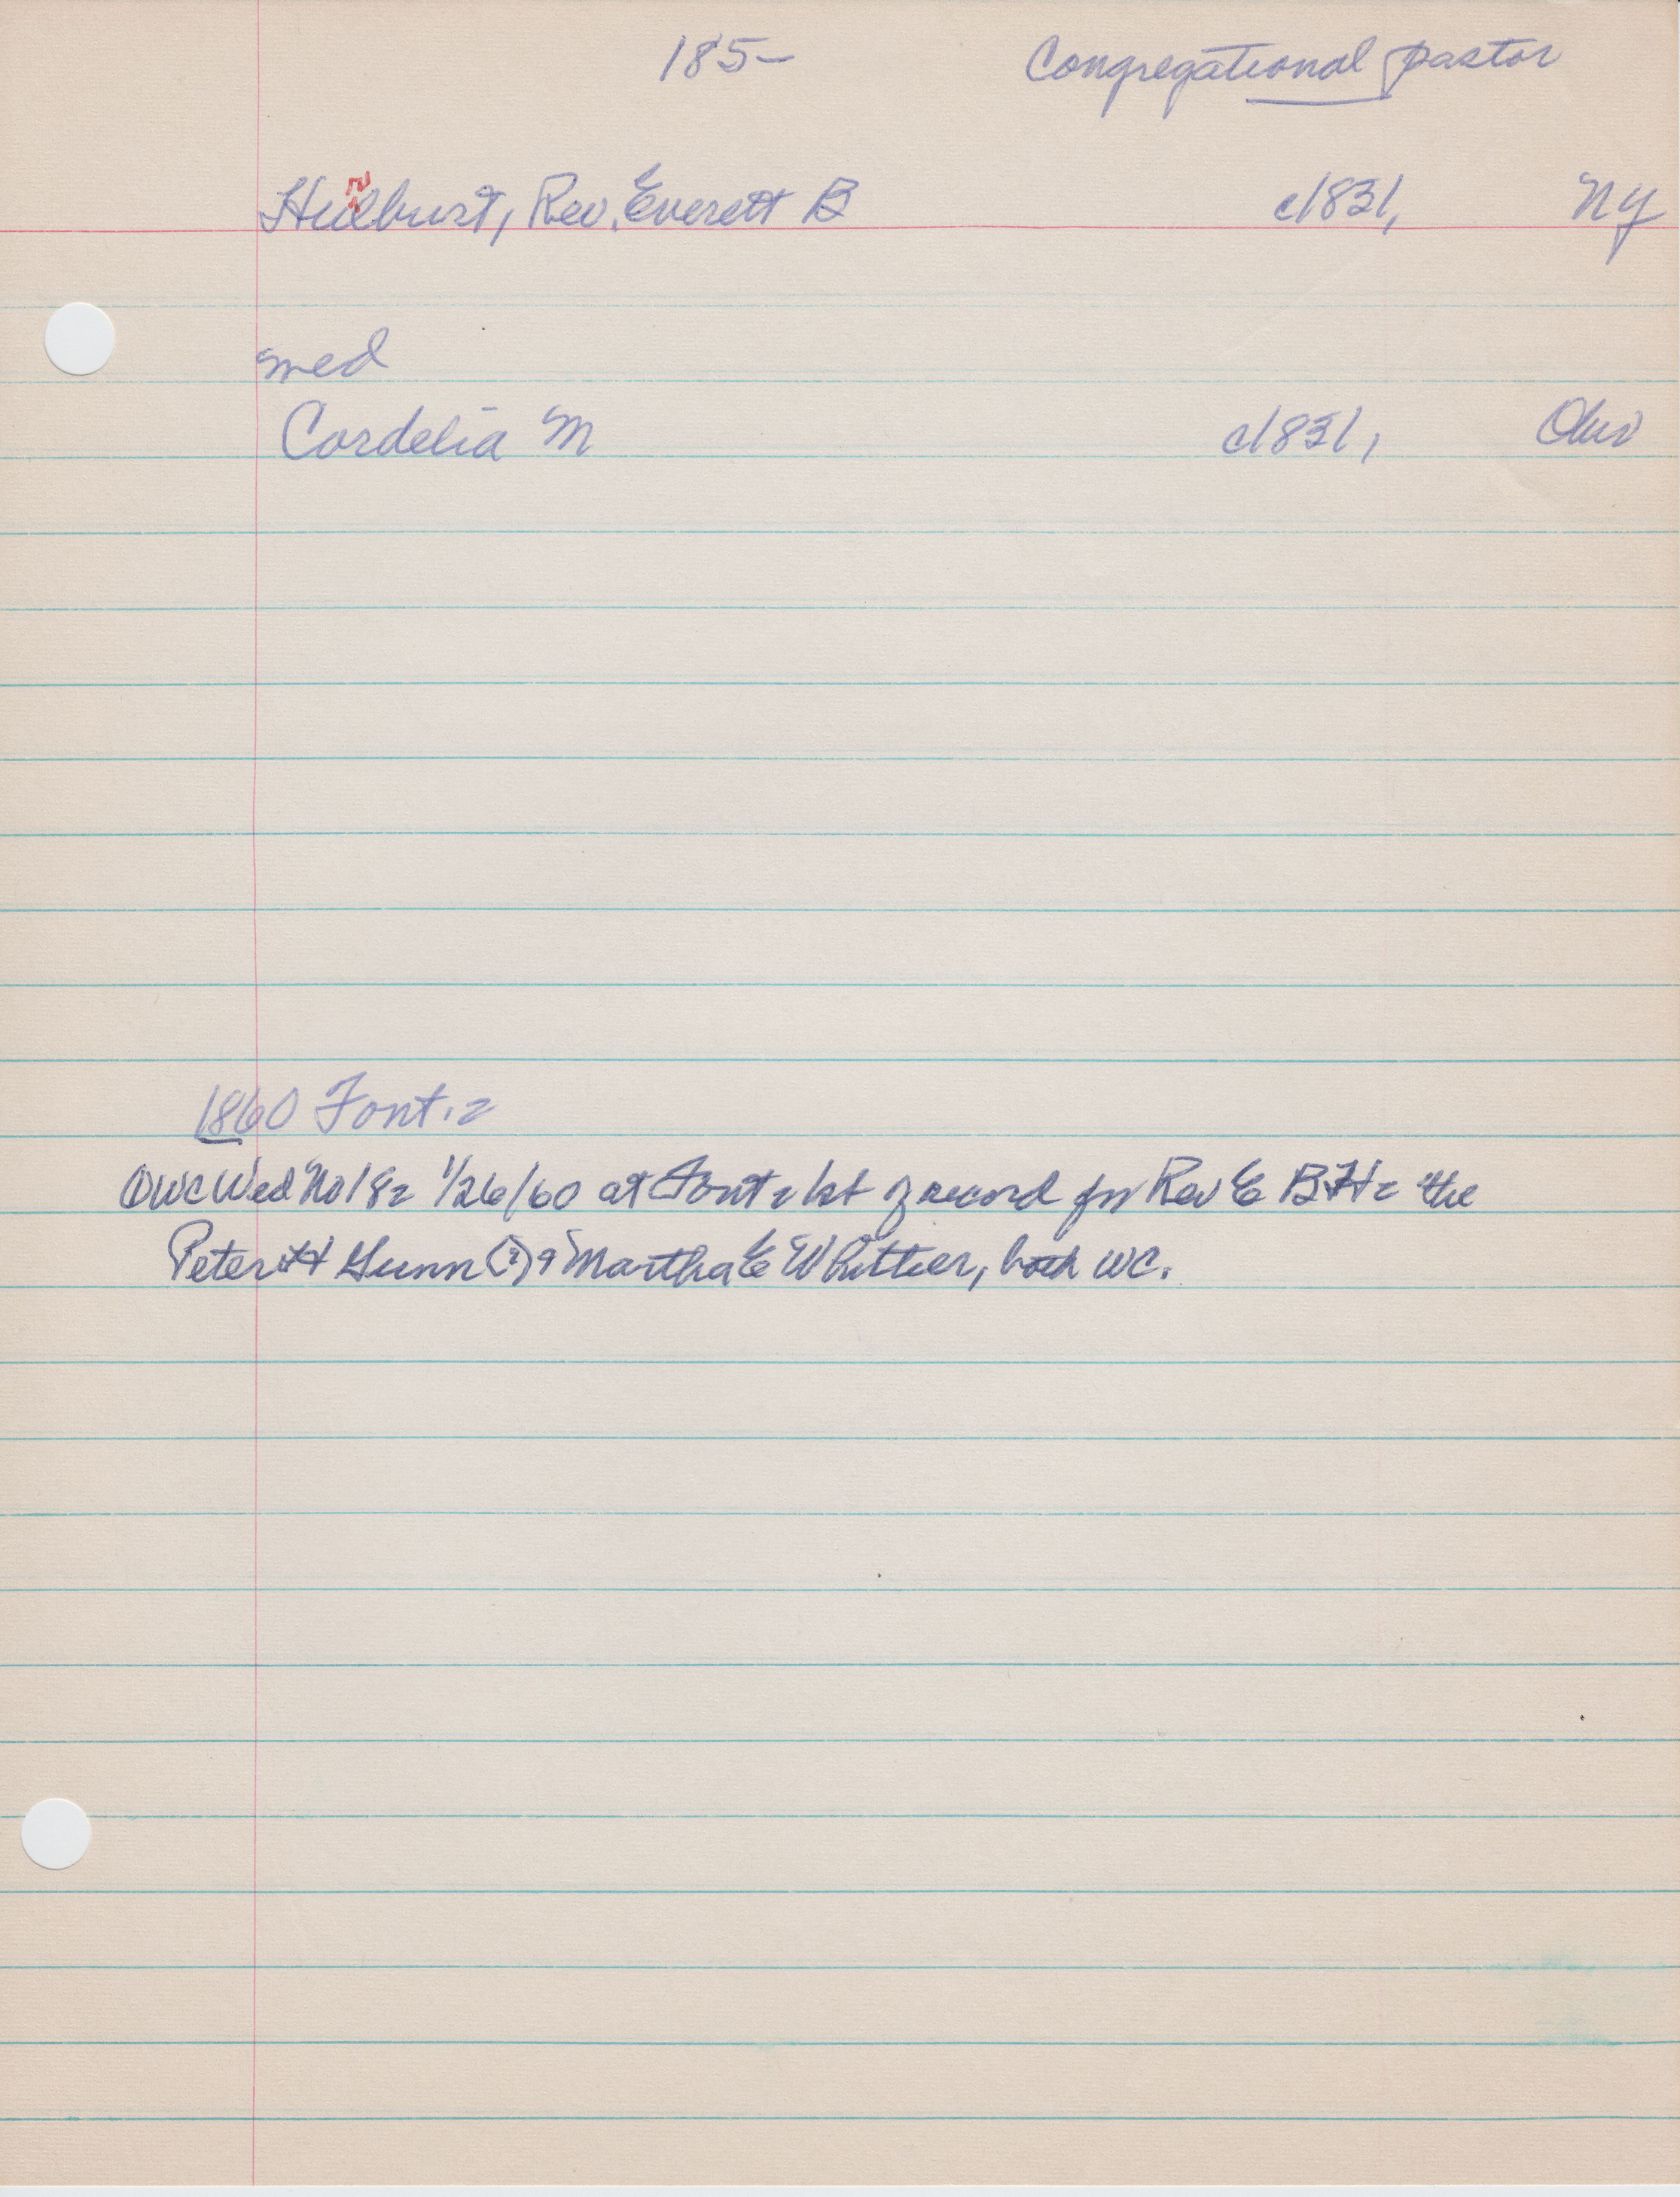 185- Congregational pastor
Hulburt, Rev. Everett B c1831, NY
med
Cordelia M c1831, Ohio
1860 Font:=
OWC Wed No 182 1/26/60 at Font = 1st of record for Rev E B H = the
Peter H Gunn (?) & Martha E Whittier, both WC.